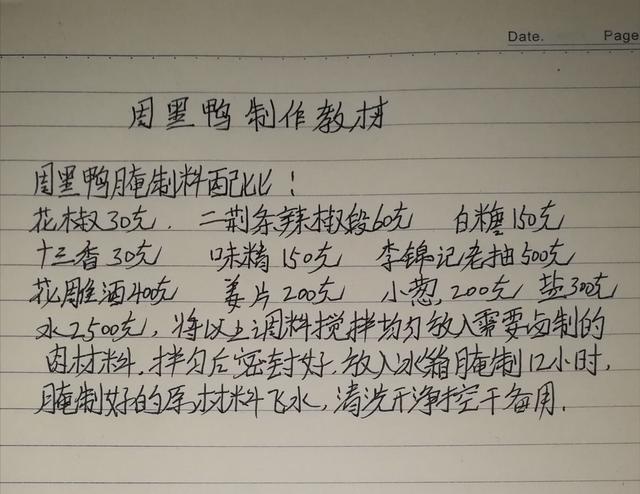 Date. Page
周黑鸭制作教材
周黑鸭腌制料配比：
花椒30克. 二荆条辣椒段60克 白糖150克
十三香30克 味精150克 李锦记老抽500克
花雕酒400克 姜片200克 小葱,200克 盐300克
水2500克，将以上调料搅拌均匀放入需要卤制的
肉材料.拌匀后密封好.放入冰箱腌制12小时,
腌制好的原材料飞水，清洗干净控干备用.